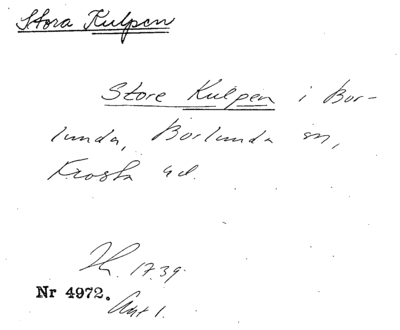 Stora Kulpen
Store Kulpen i Bor-
lunda, Borlunda sn,
Frosta hd.
1739.
Nr 4972.
Akt 1.